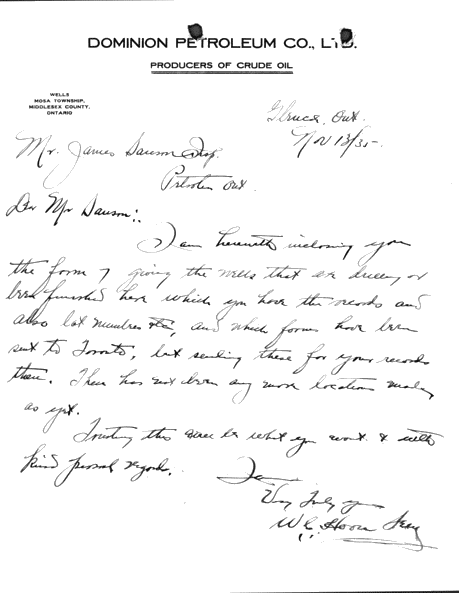 DOMINION PETROLEUM CO., LTD.
PRODUCERS OF CRUDE OIL
WELLS
MOSA TOWNSHIP,
MIDDLESEX COUNTY,
ONTARIO
Glencoe, Ont.
Nov 13/35-
Mr. James Dawson Esq.
Petrolia Ont.
Dear Mr Dawson:
I am herewith inclosing you
the form 7 giving the wells that are drilling or
been finished here which you have the records and
also lot numbers etc, and which forms have been
sent to Toronto, but sending these for your records
then. There has not been any more locations made
as yet.
Trusting this will be what you want & with
kind personal regards.
I am
Very Truly yours